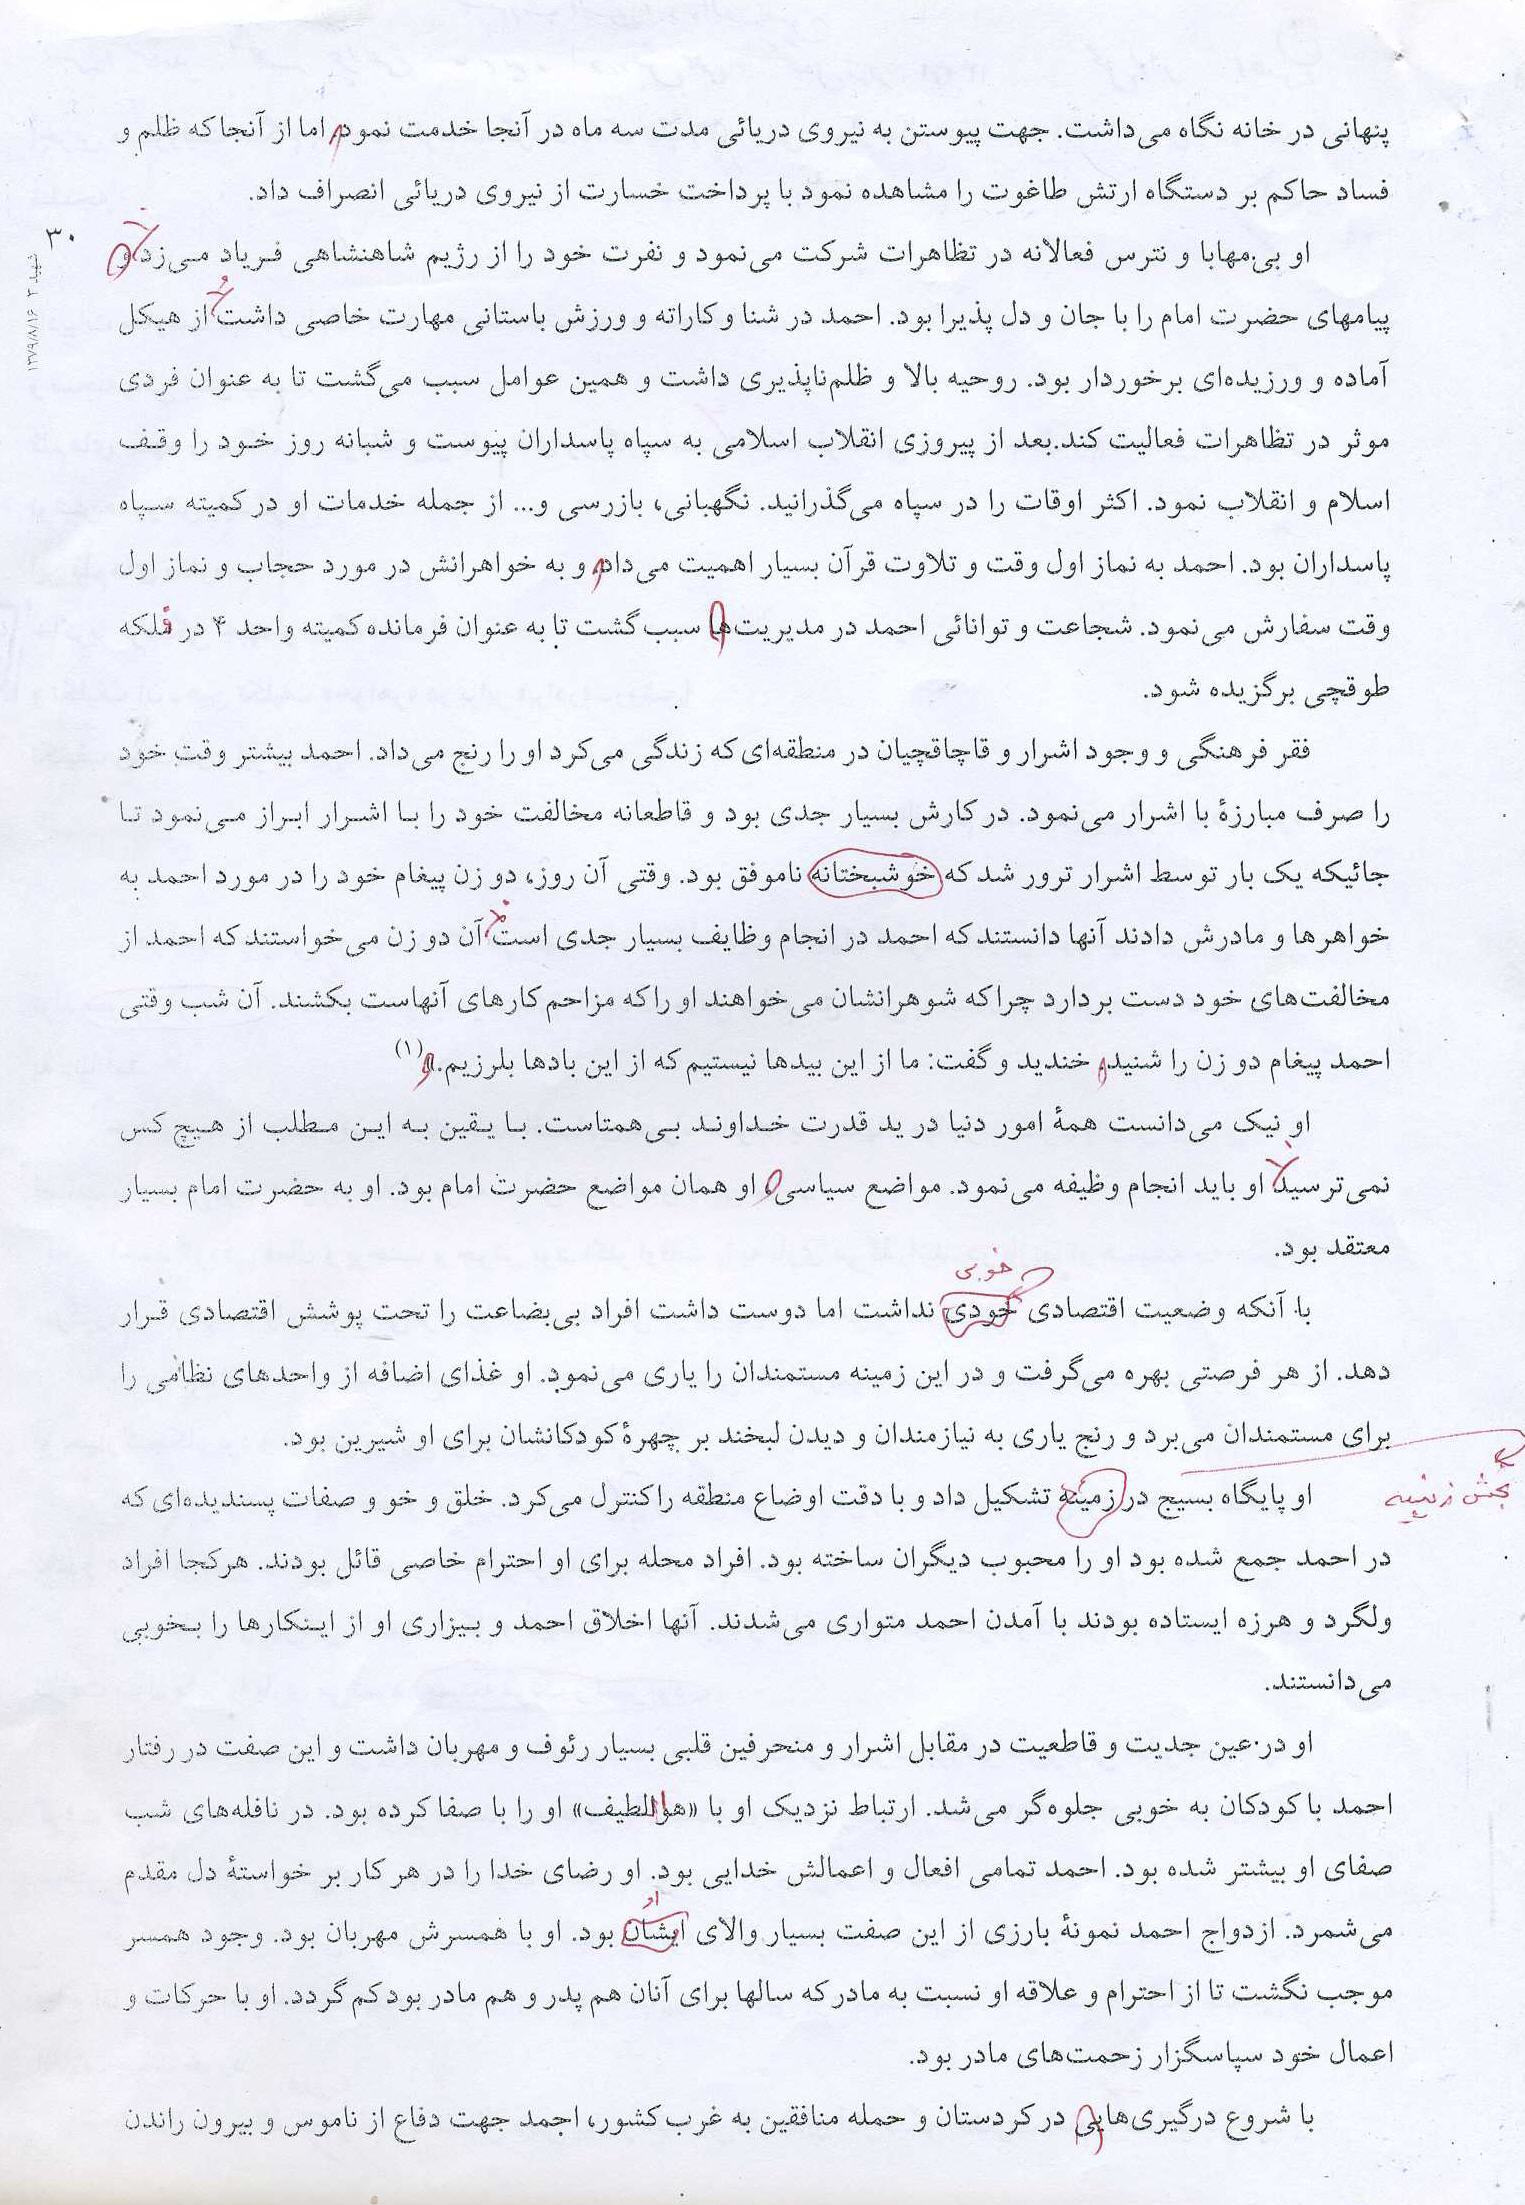 پنهانی در خانه نگاه می‌داشت. جهت پیوستن به نیروی دریائی مدت سه ماه در آنجا خدمت نمود، اما از آنجا که ظلم و
فساد حاکم بر دستگاه ارتش طاغوت را مشاهده نمود با پرداخت خسارت از نیروی دریائی انصراف داد.
۳۰
شهید ۲ ۱۳۷۹/۸/۱۶
او بی‌مهابا و نترس فعالانه در تظاهرات شرکت می‌نمود و نفرت خود را از رژیم شاهنشاهی فریاد می‌زد و
پیامهای حضرت امام را با جان و دل پذیرا بود. احمد در شنا و کاراته و ورزش باستانی مهارت خاصی داشت و از هیکل
آماده و ورزیده‌ای برخوردار بود. روحیه بالا و ظلم‌ناپذیری داشت و همین عوامل سبب می‌گشت تا به عنوان فردی
موثر در تظاهرات فعالیت کند.بعد از پیروزی انقلاب اسلامی به سپاه پاسداران پیوست و شبانه روز خود را وقف
اسلام و انقلاب نمود. اکثر اوقات را در سپاه می‌گذرانید. نگهبانی، بازرسی و... از جمله خدمات او در کمیته سپاه
پاسداران بود. احمد به نماز اول وقت و تلاوت قرآن بسیار اهمیت می‌داد، و به خواهرانش در مورد حجاب و نماز اول
وقت سفارش می‌نمود. شجاعت و توانائی احمد در مدیریت‌ها سبب گشت تا به عنوان فرمانده کمیته واحد ۴ در فلکه
طوقچی برگزیده شود.
فقر فرهنگی و وجود اشرار و قاچاقچیان در منطقه‌ای که زندگی می‌کرد او را رنج می‌داد. احمد بیشتر وقت خود
را صرف مبارزهٔ با اشرار می‌نمود. در کارش بسیار جدی بود و قاطعانه مخالفت خود را با اشرار ابراز می‌نمود تا
جائیکه یک بار توسط اشرار ترور شد که خوشبختانه ناموفق بود. وقتی آن روز، دو زن پیغام خود را در مورد احمد به
خواهرها و مادرش دادند آنها دانستند که احمد در انجام وظایف بسیار جدی است. آن دو زن می‌خواستند که احمد از
مخالفت‌های خود دست بردارد چرا که شوهرانشان می‌خواهند او را که مزاحم کارهای آنهاست بکشند. آن شب وقتی
احمد پیغام دو زن را شنید، خندید و گفت: ما از این بیدها نیستیم که از این بادها بلرزیم.»(۱)
او نیک می‌دانست همهٔ امور دنیا در ید قدرت خداوند بی‌همتاست. با یقین به این مطلب از هیچ کس
نمی‌ترسید. او باید انجام وظیفه می‌نمود. مواضع سیاسی، او همان مواضع حضرت امام بود. او به حضرت امام بسیار
معتقد بود.
خوبی
با آنکه وضعیت اقتصادی خودی نداشت اما دوست داشت افراد بی‌بضاعت را تحت پوشش اقتصادی قرار
دهد. از هر فرصتی بهره می‌گرفت و در این زمینه مستمندان را یاری می‌نمود. او غذای اضافه از واحدهای نظامی را
برای مستمندان می‌برد و رنج یاری به نیازمندان و دیدن لبخند بر چهرهٔ کودکانشان برای او شیرین بود.
بخش زینبیه
او پایگاه بسیج در زمینه تشکیل داد و با دقت اوضاع منطقه را کنترل می‌کرد. خلق و خو و صفات پسندیده‌ای که
در احمد جمع شده بود او را محبوب دیگران ساخته بود. افراد محله برای او احترام خاصی قائل بودند. هرکجا افراد
ولگرد و هرزه ایستاده بودند با آمدن احمد متواری می‌شدند. آنها اخلاق احمد و بیزاری او از اینکارها را بخوبی
می‌دانستند.
او در عین جدیت و قاطعیت در مقابل اشرار و منحرفین قلبی بسیار رئوف و مهربان داشت و این صفت در رفتار
احمد با کودکان به خوبی جلوه‌گر می‌شد. ارتباط نزدیک او با «هواللطیف» او را با صفا کرده بود. در نافله‌های شب
صفای او بیشتر شده بود. احمد تمامی افعال و اعمالش خدایی بود. او رضای خدا را در هر کار بر خواستهٔ دل مقدم
او
می‌شمرد. ازدواج احمد نمونهٔ بارزی از این صفت بسیار والای ایشان بود. او با همسرش مهربان بود. وجود همسر
موجب نگشت تا از احترام و علاقه او نسبت به مادر که سالها برای آنان هم پدر و هم مادر بود کم گردد. او با حرکات و
اعمال خود سپاسگزار زحمت‌های مادر بود.
با شروع درگیری‌هایی در کردستان و حمله منافقین به غرب کشور، احمد جهت دفاع از ناموس و بیرون راندن